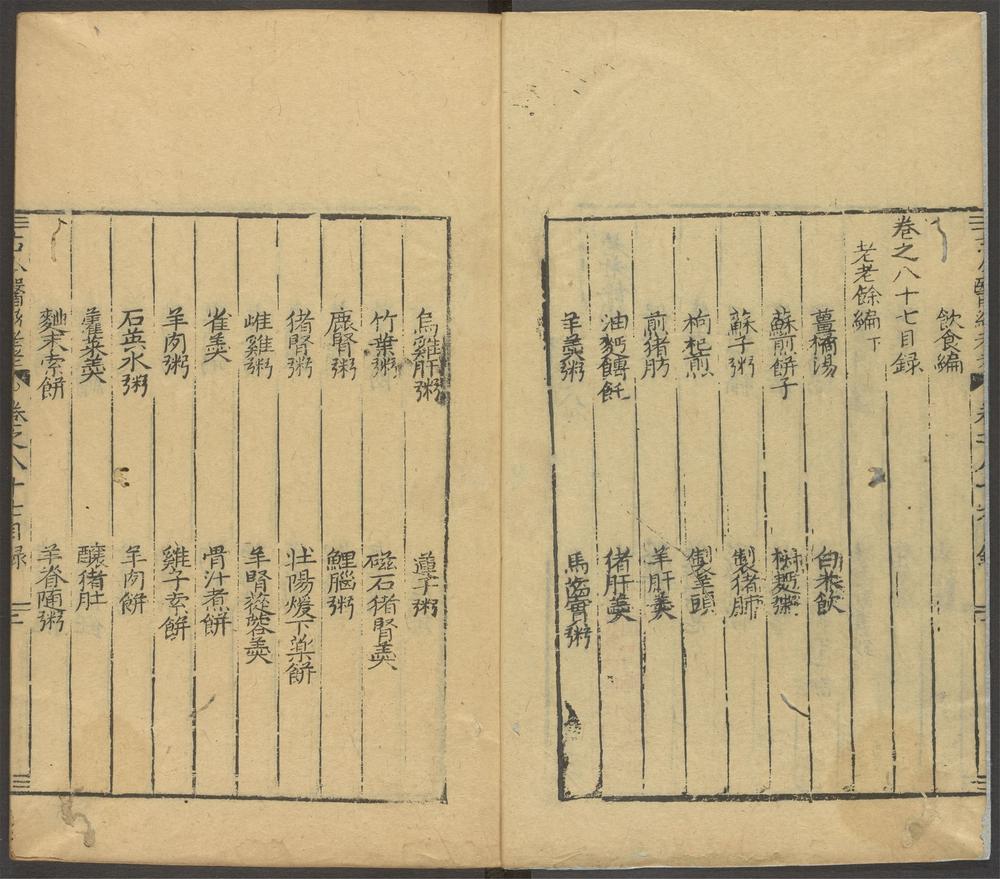 飲食編
卷之八十七目録
老老餘編下
薑橘湯　白米飲
蘇煎餅子　椒麪粥
蘇子粥　製猪肺
枸杞煎　製羊頭
煎猪肪　羊肝羹
油麪餺飥　猪肝羹
羊羹粥　馬齒實粥
烏雞肝粥　蓮子粥
竹葉粥　磁石猪腎羹
鹿腎粥　鯉腦粥
猪腎粥　壯陽煖下藥餅
雌雞粥　羊腎蓯蓉羹
雀羹　骨汁煮餅
羊肉粥　雞子索餅
石英水粥　羊肉餅
藿菜羹　釀猪肚
麯末索餅　羊脊髓粥
卷之八十七目録　三